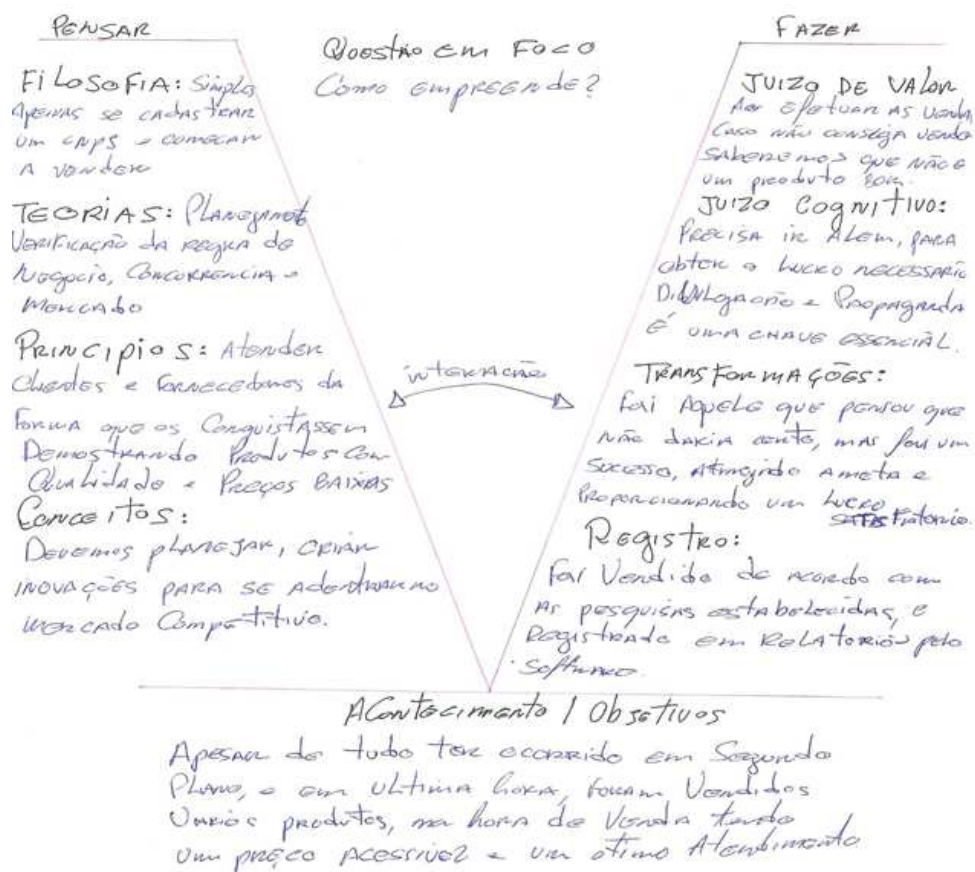 PENSAR
FILOSOFIA: Simples
Apenas se cadastrar
um CNPJ e começar
a vender
TEORIAS: Planejamento
Verificação da regra de
Negocio, Concorrencia e
Mercado
PRINCIPIOS: Atender
Clientes e fornecedores da
forma que os Conquistassem
Demostrando Produtos com
Qualidade e Preços BAIXAS
CONCEITOS:
Devemos planejar, criar
inovações para se adentrar no
mercado Competitivo.
Questão em Foco
Como empreende?
interação
FAZER
JUIZO DE VALOR
Ao efetuar as venda,
Caso não consiga vende
saberemos que não é
um produto bom.
JUIZO COGNITIVO:
Precisa ir Alem, para
obter o lucro necessario
Divulgação e Propaganda
é uma chave essencial.
TRANSFORMAÇÕES:
Foi Aquele que pensou que
não daria certo, mas foi um
Sucesso, atingido a meta e
Proporcionando um lucro
satisfatorio.
Registro:
Foi Vendido de acordo com
as pesquisas estabelecidas, e
Registrado em Relatorios pelo
Software.
Acontecimento / Objetivos
Apesar de tudo ter ocorrido em Segundo
Plano, e em ultima hora, foram Vendidos
Varios produtos, na hora de Venda tendo
um preço acessivel e um ótimo Atendimento